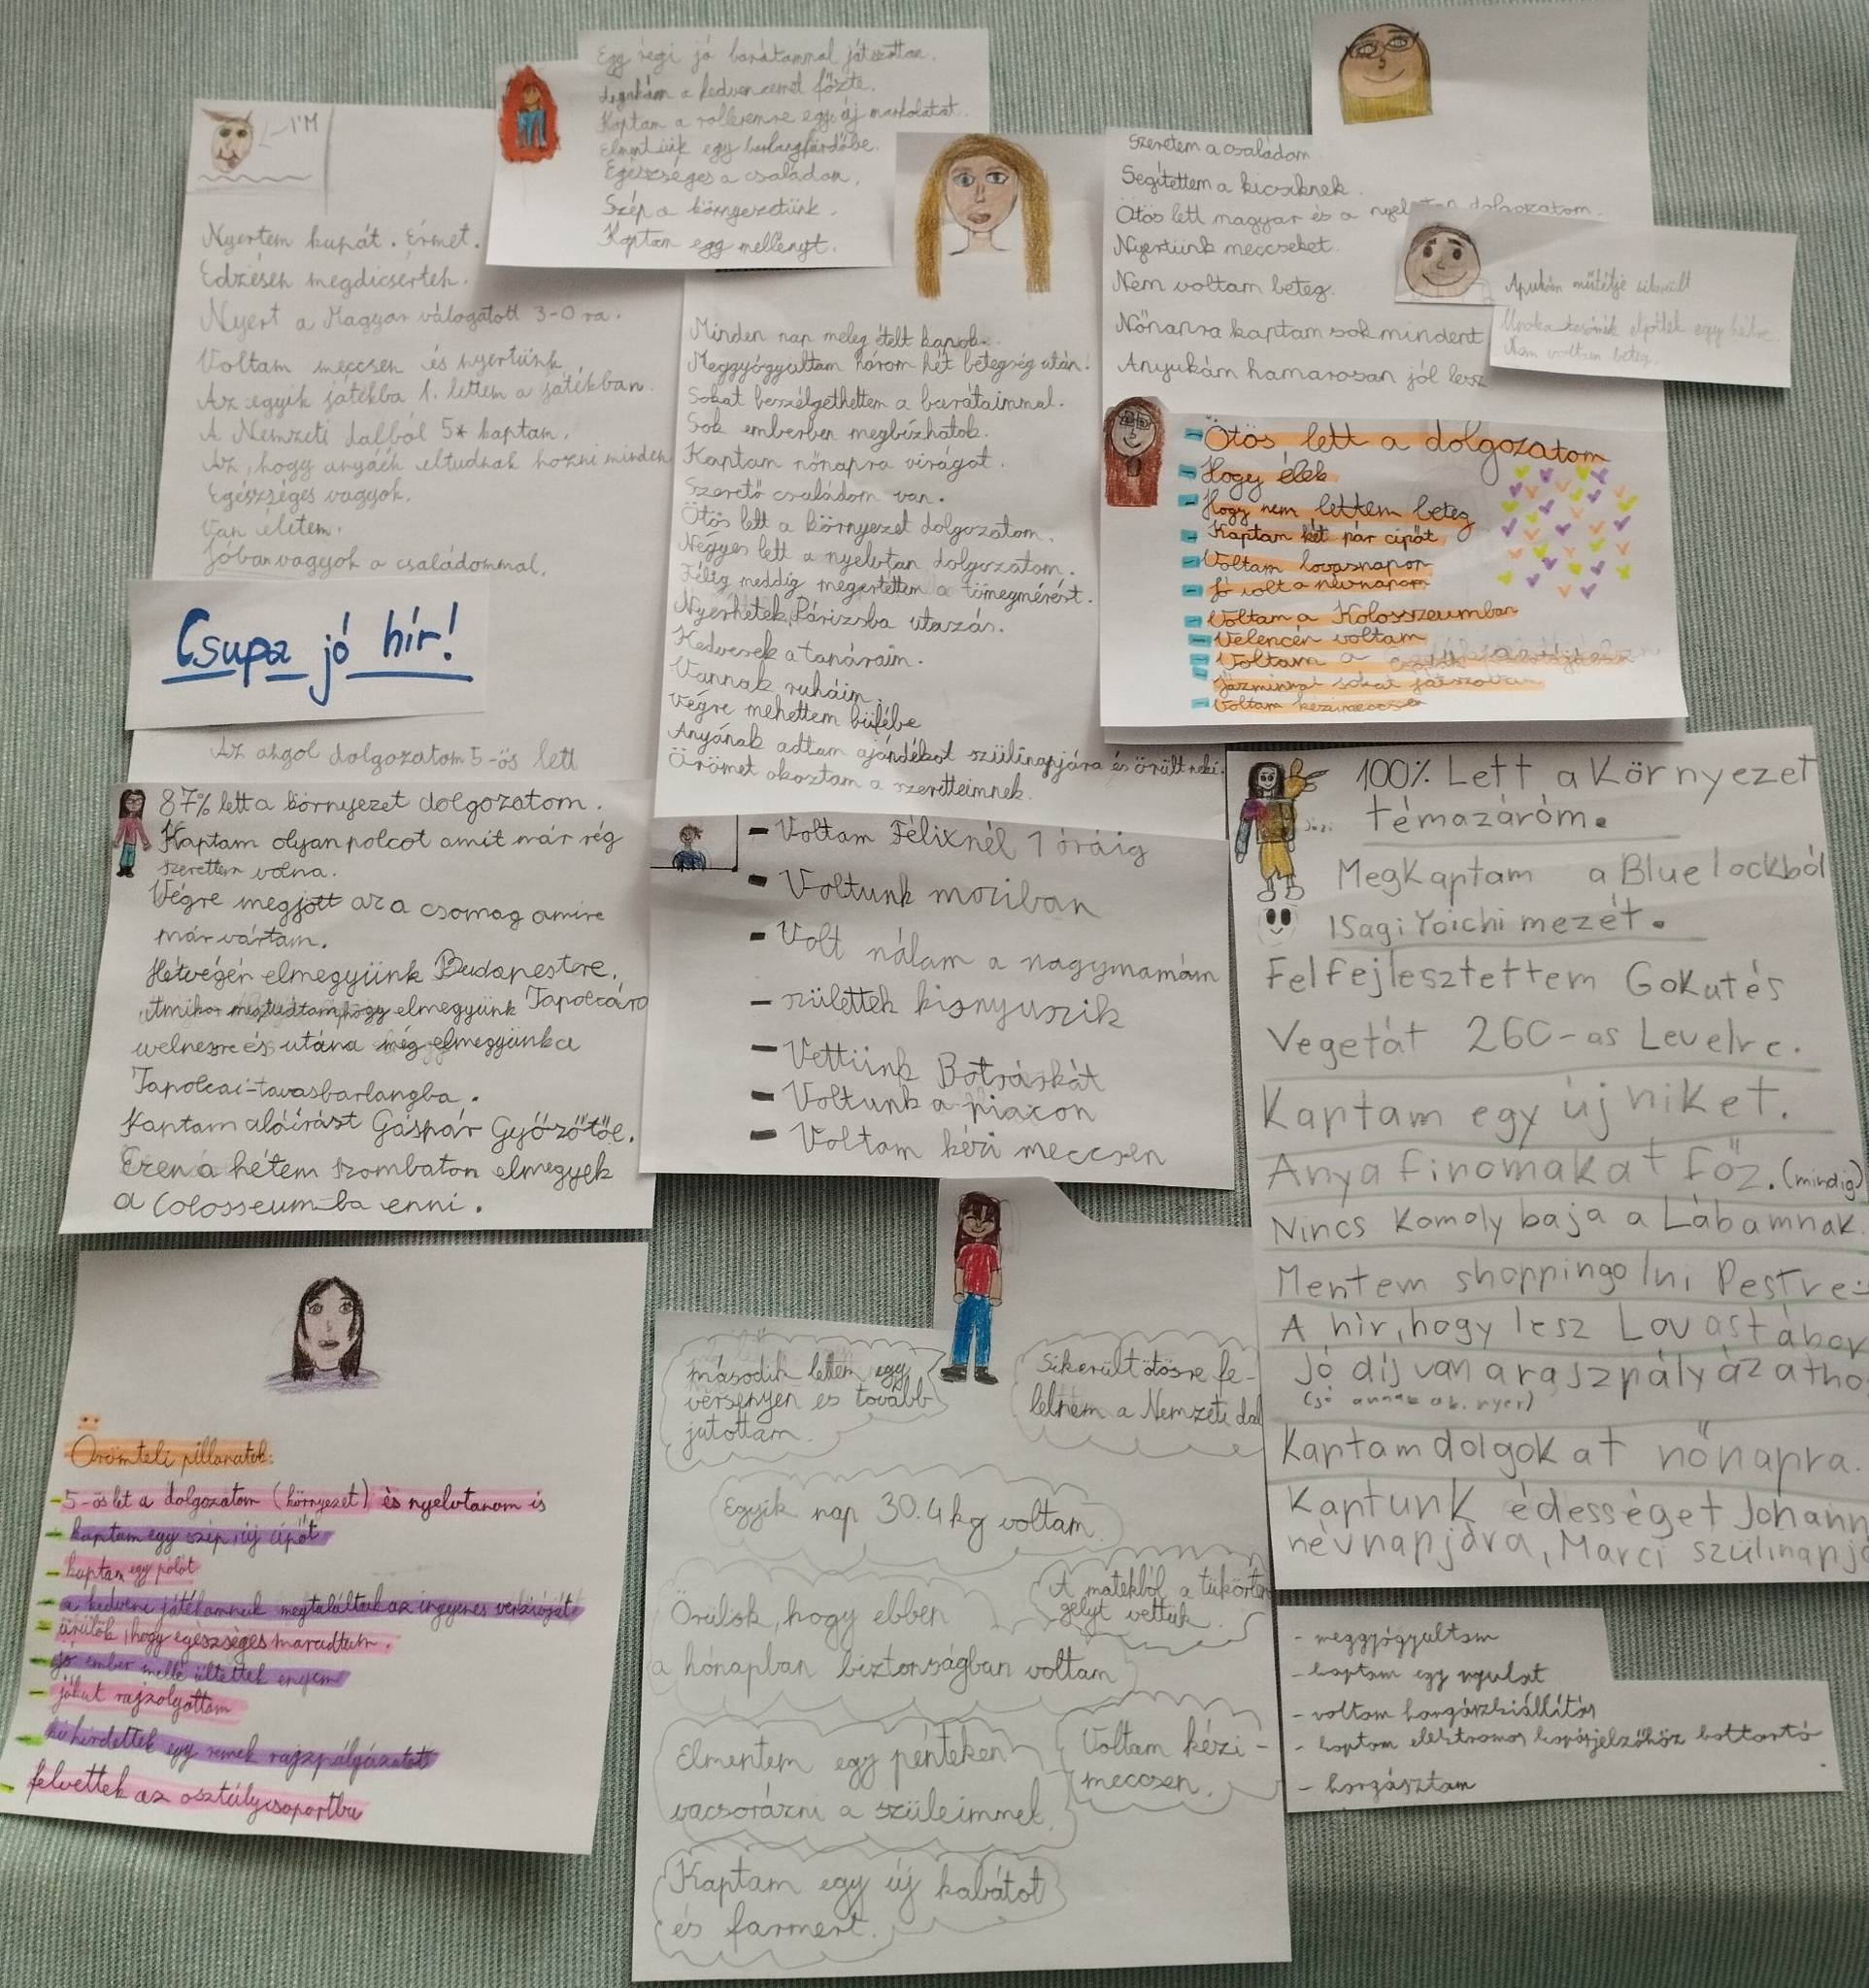 I'M
Nyertem kupát. Érmet.
Edzésen megdicsértek.
Nyert a Magyar válogatott 3-0 ra.
Voltam meccsen és nyertünk
Az egyik játékba 1. lettem a játékban.
A Nemzeti dalból 5* kaptam.
Az, hogy anyáék eltudnak hozni minden
Egészséges vagyok.
Van életem.
Jóban vagyok a családommal.
Csupa jó hír!
Az angol dolgozatom 5-ös lett
Egy régi jó barátommal játszottam.
a kedvencemet főzte.
Kaptam a rolleremre egy új markolatot.
Elmentünk egy barlangfürdőbe.
Egészséges a családom.
Szép a környezetünk.
Kaptam egy mellényt.
Minden nap meleg ételt kapok.
Meggyógyultam három hét betegség után.
Sokat beszélgethettem a barátaimmal.
Sok emberben megbízhatok.
Kaptam nőnapra virágot.
Szerető családom van.
Ötös lett a környezet dolgozatom.
Négyes lett a nyelvtan dolgozatom.
Félig meddig megértettem a tömegmérést.
Nyerhetek Párizsba utazás.
Kedvesek a tanáraim.
Vannak ruháim
Végre mehettem büfébe
Anyának adtam ajándékot szülinapjára és örült neki.
Örömet okoztam a szeretteimnek.
Szeretem a családom
Segítettem a kicsiknek.
Ötös lett magyar és a nyelvtan dolgozatom.
Nyertünk meccseket.
Nem voltam beteg.
Nőnapra kaptam sok mindent
Anyukám hamarosan jól lesz
Apukám műtétje sikerült
eljöttek egy hétre
Nem voltam beteg.
- Ötös lett a dolgozatom
- Hogy élek
- Hogy nem lettem beteg
- Kaptam két pár cipőt
- Voltam lovasnapon
- Jó volt a névnapom
- Voltam a Kolosszeumban
- Velencén voltam
- Voltam a
- Jázminnal sokat játszottam
- Voltam kézimeccsen
87% lett a környezet dolgozatom.
Kaptam olyan polcot amit már rég
szerettem volna.
Végre megjött az a csomag amire
már vártam.
Hétvégén elmegyünk Budapestre.
elmegyünk Tapolcára
welnesre és utána még elmegyünk a
Tapolcai-tavasbarlangba.
Kaptam aláírást Gáspár Győzőtől.
Ezen a hétem szombaton elmegyek
a Colosseum-ba enni.
- Voltam Félixnél 1 óráig
- Voltunk moziban
- Volt nálam a nagymamám
- születtek kisnyuszik
- Vettünk Botsáskát
- Voltunk a piacon
- Voltam kézi meccsen
100% Lett a Környezet
témazáróm.
Megkaptam a Blue lockból
ISagi Yoichi mezét.
Felfejlesztettem Gokut és
Vegetát 260-as Levelre.
Kaptam egy új niket.
Anya finomakat főz. (mindig)
Nincs Komoly baja a Lábamnak.
Mentem shoppingolni Pestre
A hír, hogy lesz Lovastábor
Jó díj van a rajzpályázatho
(jó annak aki nyer)
Kaptam dolgokat nőnapra.
Kaptunk édességet Johann
névnapjára, Marci szülinapjá
Örömteli pillanatok:
- 5-ös let a dolgozatom (környezet) és nyelvtanom is
- kaptam egy szép, új cipőt
- kaptam egy pólót
- a kedvenc játékomnak megtaláltuk az ingyenes verzióját
- örülök, hogy egészséges maradtam.
- jó ember mellé ültettek engem
- jókat rajzolgattam
- kihirdettek egy remek rajzpályázatot
- felvettek az osztálycsoportba
második lettem egy
versenyen és tovább
jutottam.
Sikerült ötösre fe-
lelnem a Nemzeti dal
Egyik nap 30.4 kg voltam.
Örülök, hogy ebben
a hónapban biztonságban voltam
A matekból a tükörten
gelyt vettük.
Elmentem egy pénteken
vacsorázni a szüleimmel.
Voltam kézi-
meccsen.
Kaptam egy új kabátot
és farmert.
- meggyógyultam
- kaptam egy nyulat
- voltam horgászkiállítás
- kaptam elektromos kapásjelzőhöz bottartó
- horgásztam